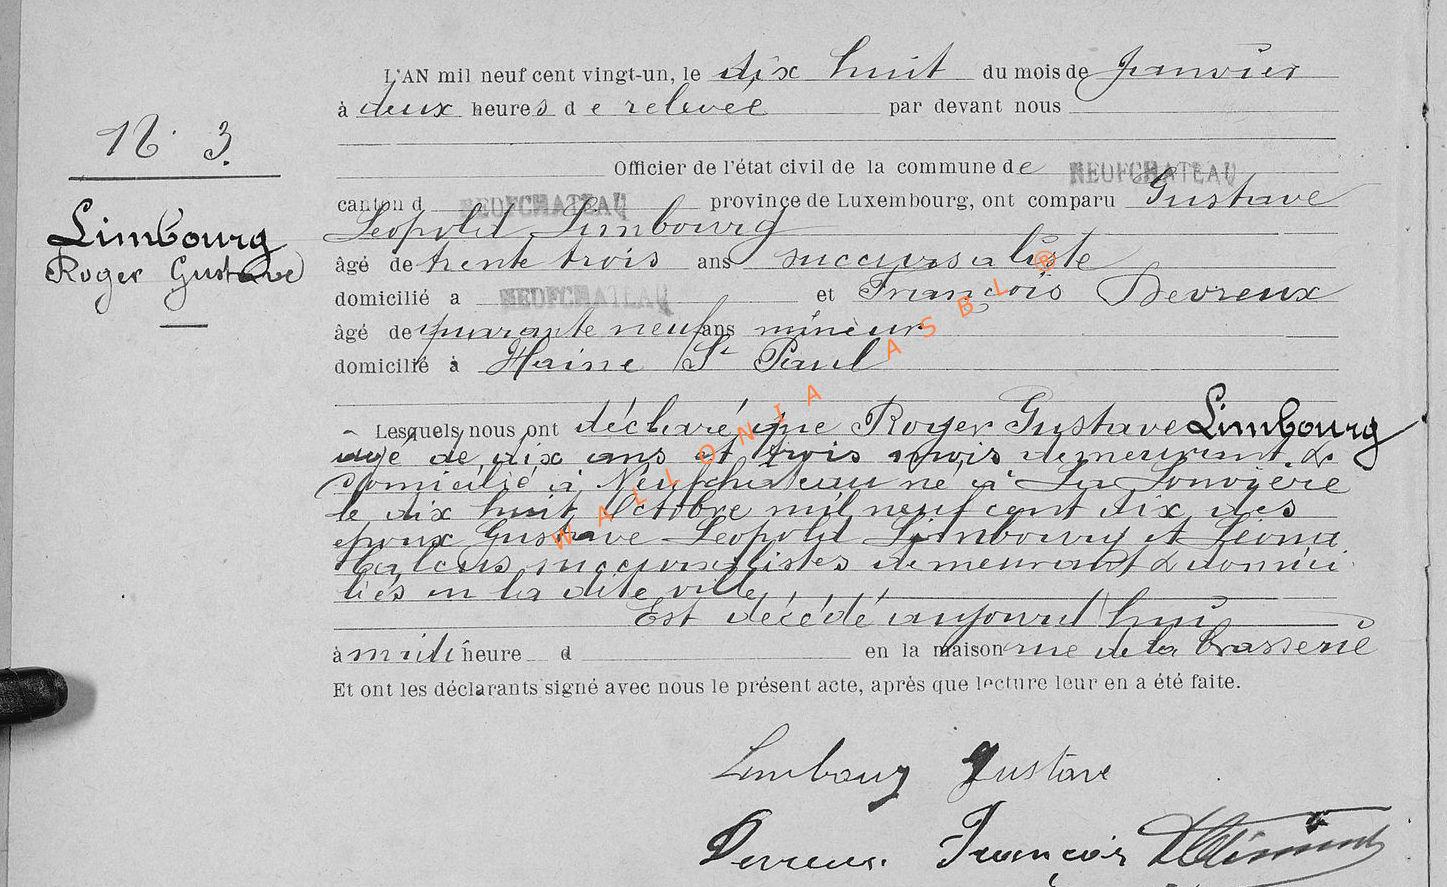 L'AN mil neuf cent vingt-un, le dix huit du mois de Janvier
à deux heures de relevée par devant nous
N° 3.
Officier de l'état civil de la commune de NEUFCHATEAU
canton d NEUFCHATEAU province de Luxembourg, ont comparu Gustave
Limbourg
Léopold Limbourg
Roger Gustave
âgé de trente trois ans succursaliste
domicilié a NEUFCHATEAU et François Devreux
âgé de quarante neuf ans mineur
domicilié à Haine St Paul
Lesquels nous ont déclaré que Roger Gustave Limbourg
agé de dix ans et trois mois demeurant &
domicilié à Neufchâteau né à La Louvière
le dix huit Octobre mil neuf cent dix, des
époux Gustave Léopold Limbourg et Léona
succursalistes demeurant & domici
liés en la dite ville,
Est décédé aujourd'hui
à midi heure d en la maison rue de la Brasserie
Et ont les déclarants signé avec nous le présent acte, aprés que lecture leur en a été faite.
Limbourg Gustave
Devreux François
WALLONIA ASBL ®